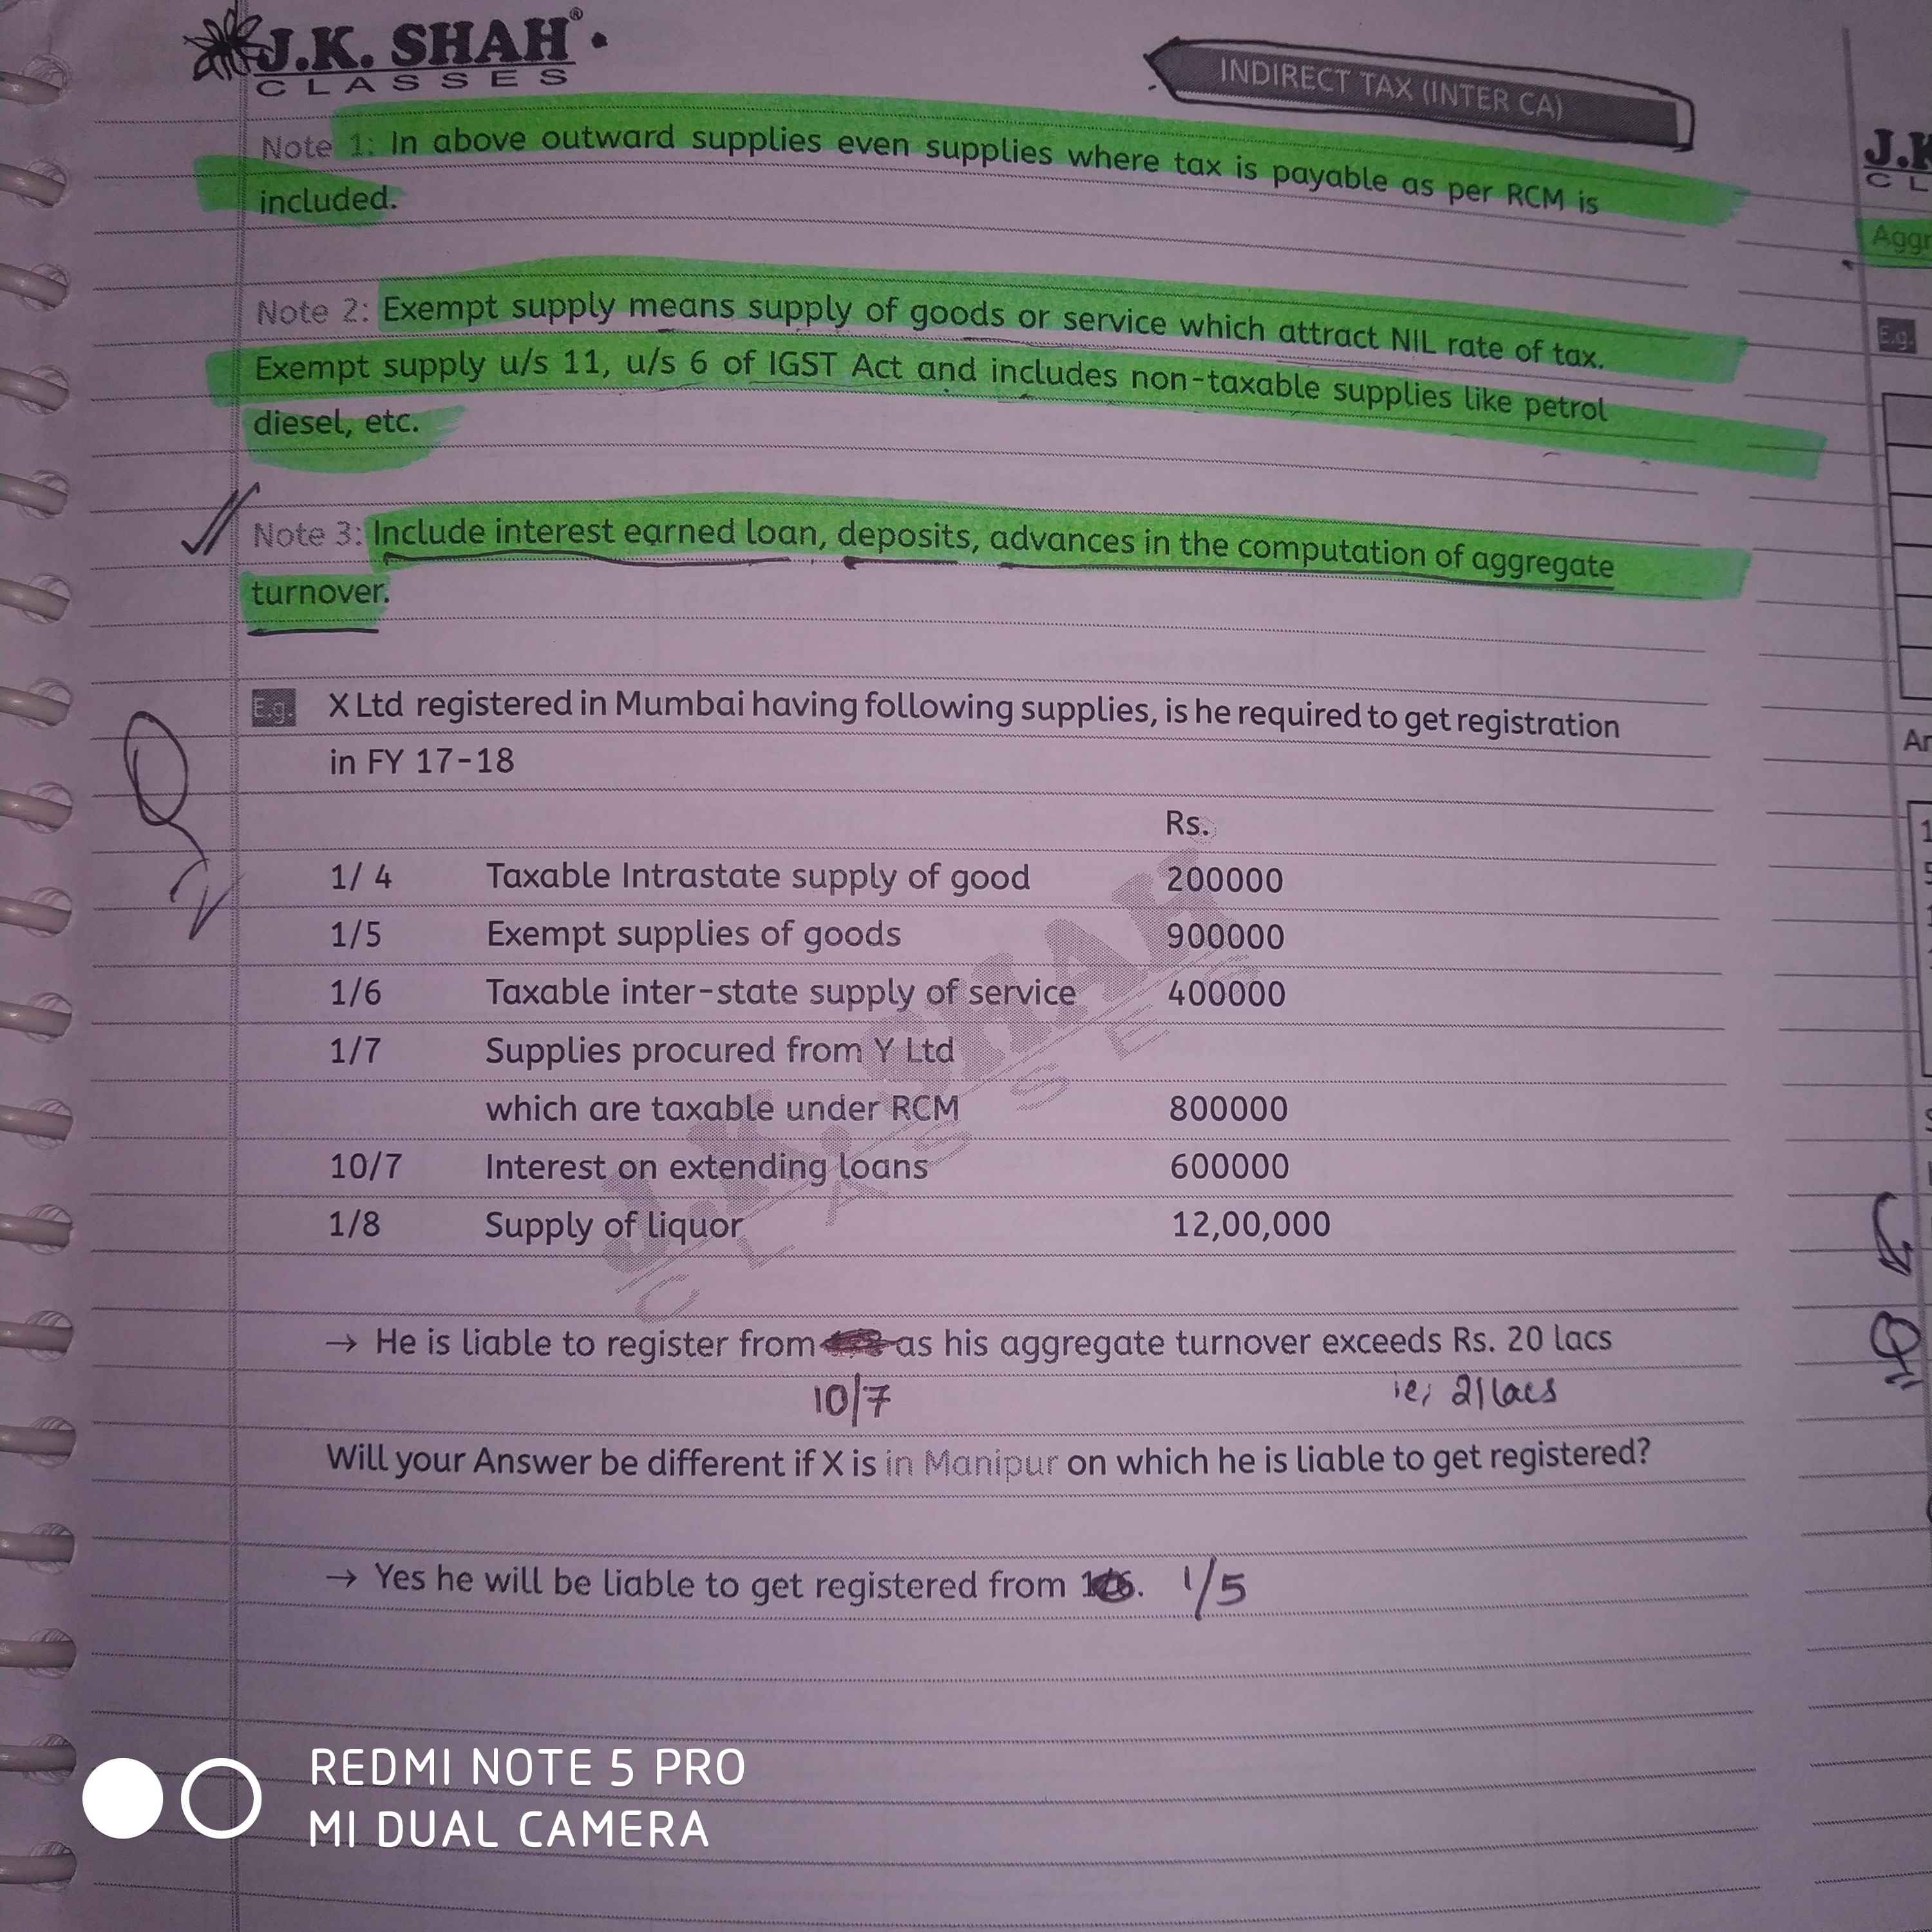 J.K. SHAH®
CLASSES
INDIRECT TAX (INTER CA)
Note 1: In above outward supplies even supplies where tax is payable as per RCM is
included.
Note 2: Exempt supply means supply of goods or service which attract NIL rate of tax.
Exempt supply u/s 11, u/s 6 of IGST Act and includes non-taxable supplies like petrol
diesel, etc.
Note 3: Include interest earned loan, deposits, advances in the computation of aggregate
turnover.
E.g. X Ltd registered in Mumbai having following supplies, is he required to get registration
in FY 17-18
Rs.
1/ 4 Taxable Intrastate supply of good 200000
1/5 Exempt supplies of goods 900000
1/6 Taxable inter-state supply of service 400000
1/7 Supplies procured from Y Ltd
which are taxable under RCM 800000
10/7 Interest on extending loans 600000
1/8 Supply of liquor 12,00,000
→ He is liable to register from as his aggregate turnover exceeds Rs. 20 lacs
10/7 ie, 21 lacs
Will your Answer be different if X is in Manipur on which he is liable to get registered?
→ Yes he will be liable to get registered from 1/5
J.K. SHAH
CLASSES
REDMI NOTE 5 PRO
MI DUAL CAMERA
J.K
CL
Aggr
E.g.